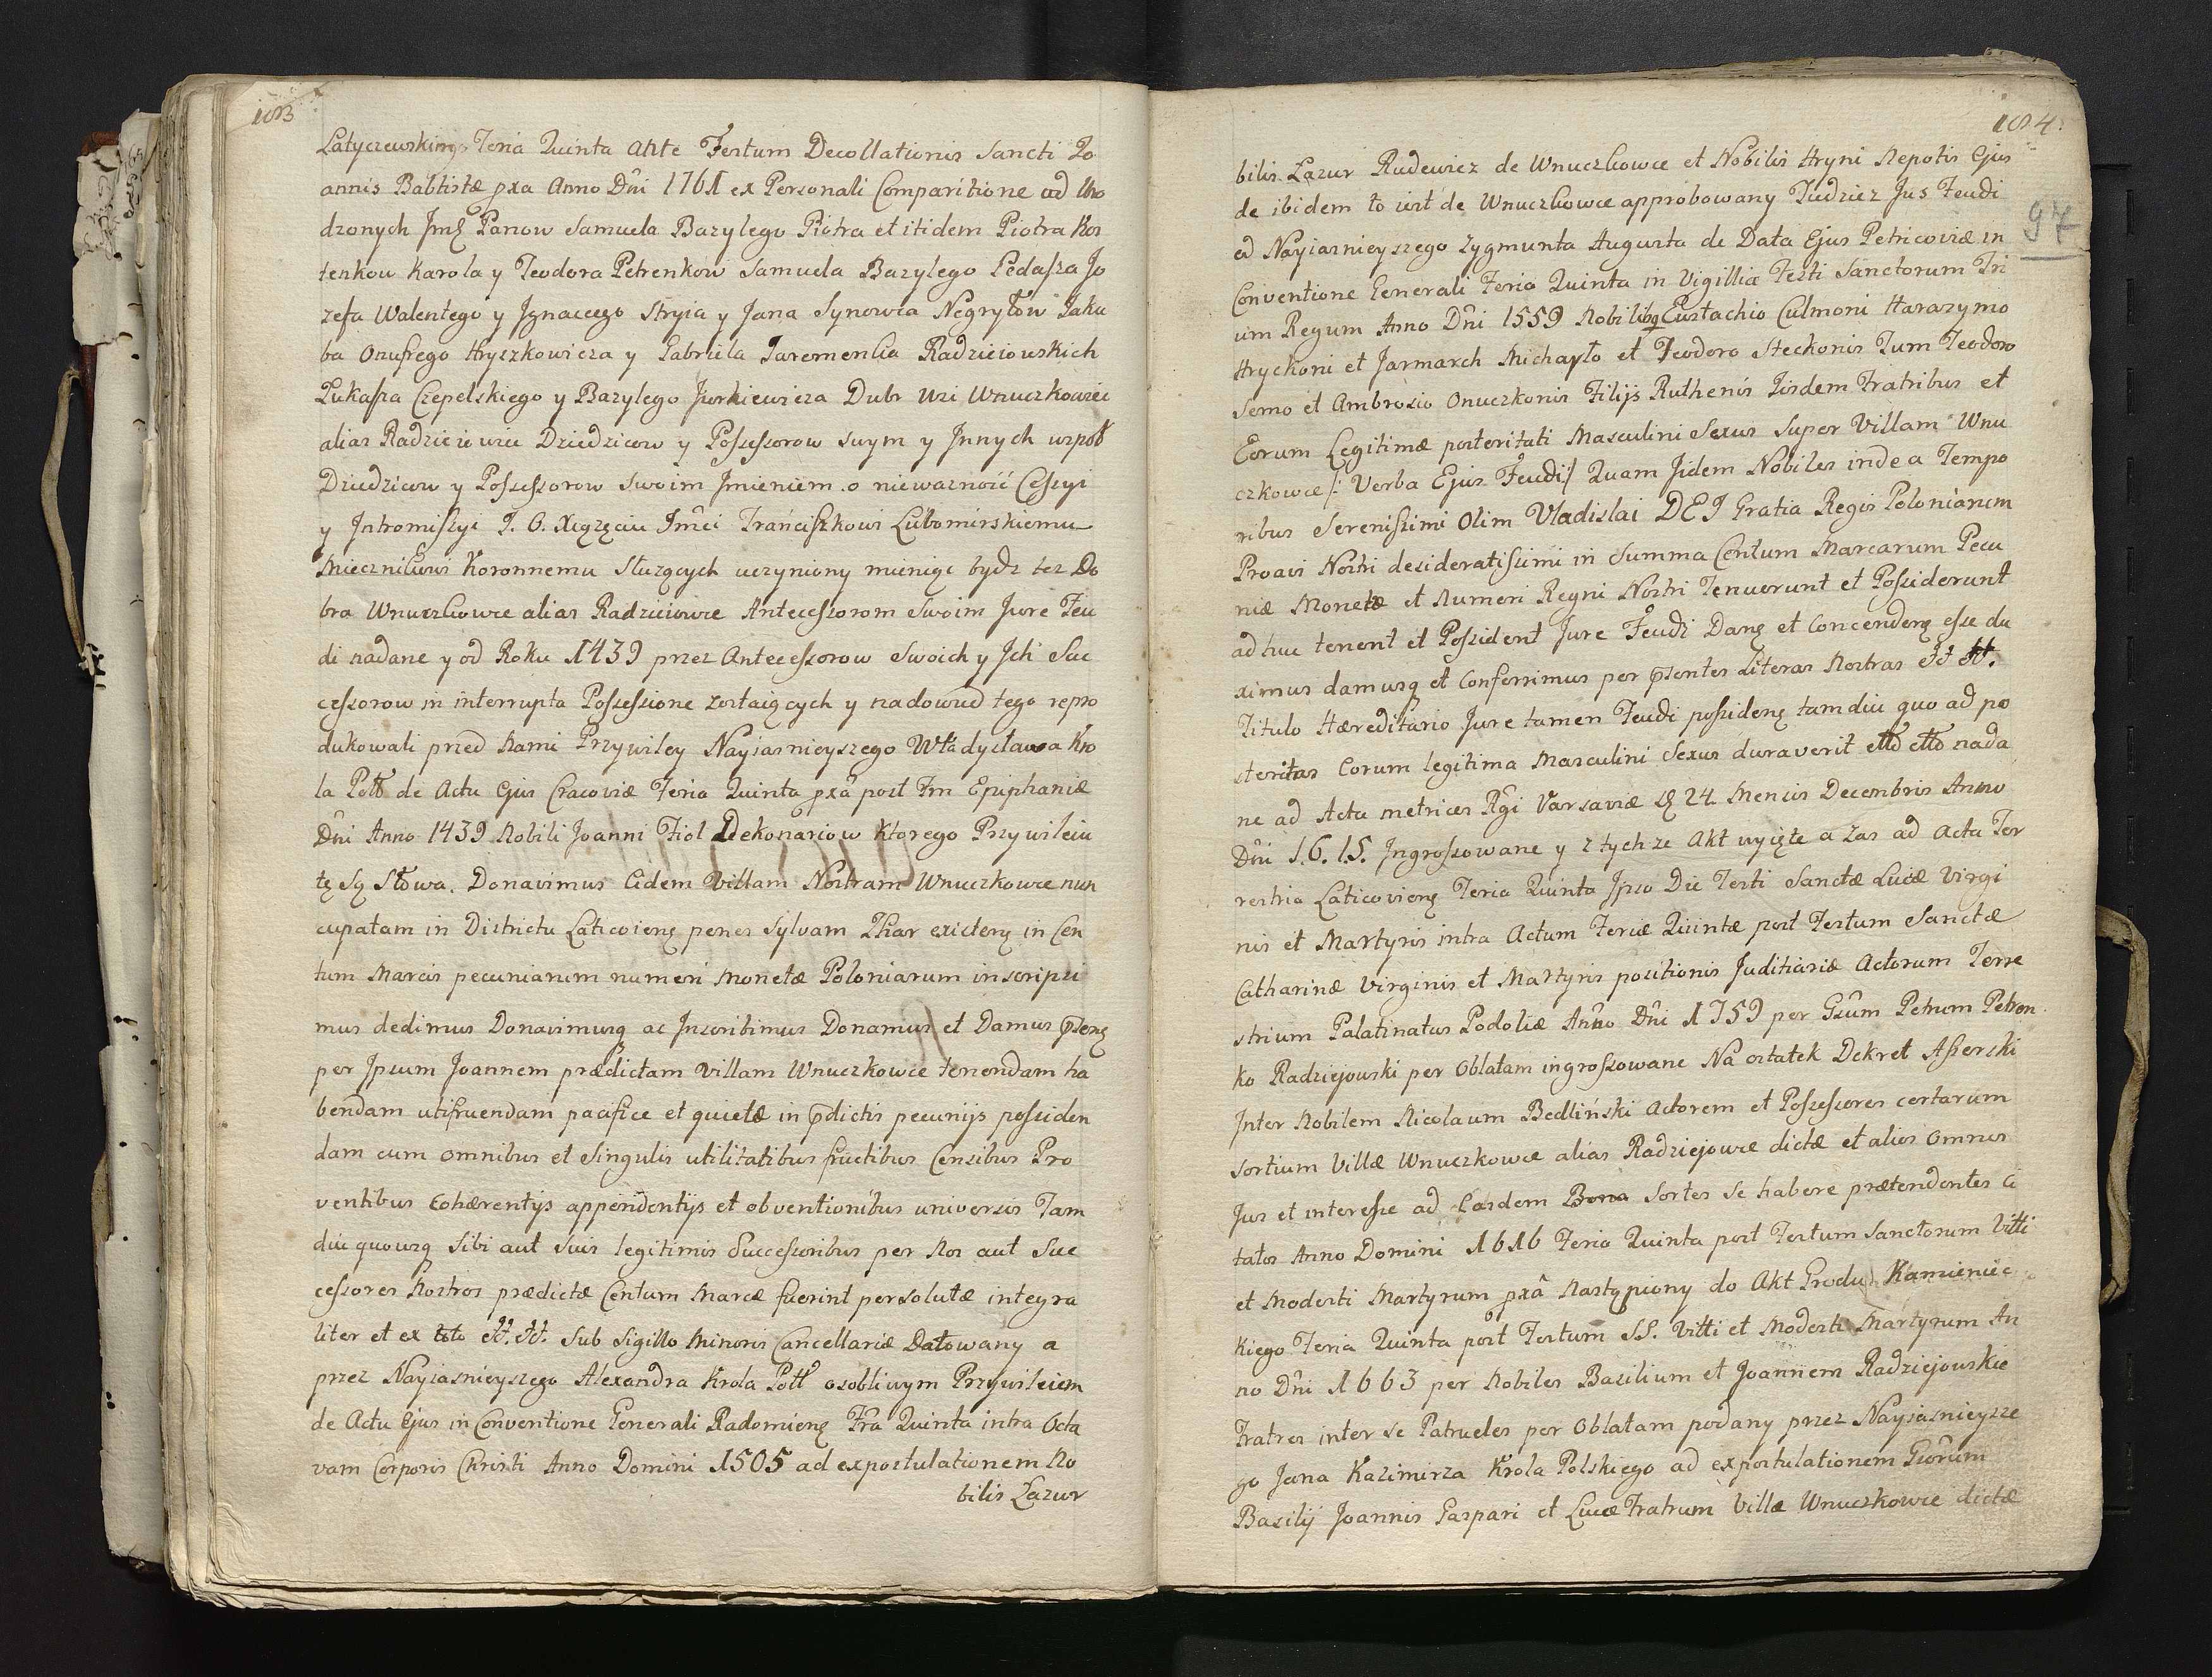 183
Latyczewskimz Feria Quinta ante Festum Decollationis Sancti Jo
annis Babtistæ pxa Anno Dñi 1761 ex Personali Comparitione od Uro
dzonych Jmę Panow Samuela Bazylego Piotra et itidem Piotra Kos
tenkow Karola y Teodora Petrenkow Samuela Bazylego Fedasza Jo
zefa Walentego y Jgnacego Stryia y Jana Synowca Negryłow Jaku
ba Onufrego Hryszkowicza y Gabriela Jaremenka Radzieiowskich
Łukasza Czepelskiego y Bazylego Jurkiewicza Dubr Wsi Wnuczkowiec
alias Radzieiewiec Dziedzicow y Possessorow swym y Jnnych wspoł
Dziedzicow y Possessorow swoim Jmieniem o niewaznosć Cessyi
y Jntromissyi J. O. Xiązęciu Jmci Franciszkowi Lubomirskiemu
Miecznikowi Koronnemu słuzących uczyniony mieniąc bydz tez Do
bra Wnuczkowce alias Radzieiowce Antecessorom swoim Jure Feu
di nadane y od Roku 1439 przez Antecessorow swoich y Jch Suc
cessorow in interrupta Possessione zostaiących y nadowod tego repro
dukowali przed Nami Przywiley Nayiasnieyszego Władysława Kro
la Poll de Actu Ejus Cracoviæ Feria Quinta pxa post Fm Epiphaniæ
Dñi Anno 1439 Nobili Joanni Fiol Dekonariow ktorego Przywileiu
tę są słowa. Donavimus Eidem Villam Nostram Wnuczkowce nun
cupatam in Districtu Laticoviens penes Sylvam Zhar existens in Cen
tum Marcis pecuniarum numeri Monetæ Poloniarum inscripsi
mus dedimus Donavimusq ac Jnscribimus Donamus et Damus psens
per Jpsum Joannem prædictam Villam Wnuczkowce tenendam ha
bendam utifruendam pacifice et quietæ in pdictis pecunijs possiden
dam cum omnibus et singulis utilitatibus fructibus Censibus Pro
ventibus Cohærentijs appendentijs et obventionibus universis Tam
diu quousq sibi aut suis legitimis Successoribus per Nos aut Suc
cessores Nostros prædictæ Centum Marcæ fuerint persolutæ integra
liter et ex toto tt. tt. sub sigillo Minoris Cancellariæ Datowany a
przez Nayiasnieyszego Alexandra Krola Poll osobliwym Przywileiem
de Actu Ejus in Conventione Generali Radomiens Fra Quinta intra Octa
vam Corporis Christi Anno Domini 1505 ad expostulationem No
bilis Lazur
184
97
bilis Lazur Rudewicz de Wnuczkowce et Nobilis Hryni Nepotis Ejus
de ibidem to iest de Wnuczkowce approbowany Tudziez Jus Feudi
od Nayiasnieyszego Zygmunta Augusta de Data Ejus Petricoviæ in
Conventione Generali Feria Quinta in Vigillia Festi Sanctorum Tri
um Regum Anno Dñi 1559 Nobilibq Eustachio Culmoni Harasymo
Hryckoni et Jarmarch Michayło et Feodoro Steckonis Tum Teodoro
Semo et Ambrosio Onuczkonis Filijs Ruthenis Jisdem Fratribus et
Eorum Legitimæ posteritati Masculini Sexus super Villam Wnu
czkowce /: Verba Ejus Feudi :/ Quam Jidem Nobiles inde a Tempo
ribus Serenissimi Olim Vladislai DEJ Gratia Regis Poloniarum
Proavi Nostri desideratissimi in Summa Centum Marcarum Pecu
niæ Monetæ et Numeri Regni Nostri Tenuerunt et Possiderunt
adhuc tenent et Possident Jure Feudi Dans et Concendens esse du
ximus damusq et Conferrimus per psentes Literas Nostras tt tt.
Titulo Hæreditario Jure tamen Feudi possidens tamdiu quo ad po
steritas Eorum legitima Masculini Sexus duraverit etto etto nada
ne ad Acta metrices Rgi Varsaviæ D 24 Mensis Decembris Anno
Dñi 1.6.15. Jngrossowane y z tychze Akt wyięte a zas ad Acta Ter
restria Laticoviens Feria Quinta Jpso Die Festi Sanctæ Luciæ Virgi
nis et Martyris intra Actum Feriæ Quintæ post Festum Sanctæ
Catharinæ Virginis et Martyris positionis Juditiariæ Actorum Terre
strium Palatinatus Podoliæ Anno Dñi 1759 per Gsum Petrum Petren
ko Radziejowski per Oblatam ingrossowane Na ostatek Dekret Asserski
Jnter Nobilem Nicolaum Bedliński Actorem et Possessores certarum
sortium Villæ Wnuczkowce alias Radziejowce dictæ et alios omnes
Jus et interesse ad Easdem Bona sortes se habere prætendentes Ci
tatos Anno Domini 1616 Feria Quinta post Festum Sanctorum Vitti
et Modesti Martyrum pxâ Nastąpiony do Akt Grodu Kamieniec
kiego Feria Quinta post Festum SS. Vitti et Modesti Martyrum An
no Dñi 1663 per Nobiles Basilium et Joannem Radziejowskie
Fratres inter se Patrueles per Oblatam podany przez Nayiasnieysze
go Jana Kazimirza Krola Polskiego ad expostulationem Gsorum
Basilij Joannis Gaspari et Lucæ Fratrum Villæ Wnuczkowce dictæ